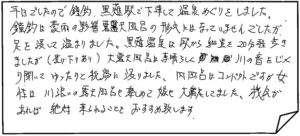 平日でしたので 館跡、黒薙駅で下車して温泉めぐりをしました。
鐘釣は豪雨の影響で露天風呂の形状にはなっていませんでしたが
足を浸して温まりました。黒薙温泉は駅から細道を20分程歩き
ましたが(走り下りあり) 大露天風呂は素晴らしく 川の音をじっく
り聞いて ゆったりと秘湯に浸りました。内風呂はコンパクトですが女
性は川沿いの露天風呂も含めて 大大満足しました。機会が
あれば 絶対 来られることを おすすめ致します。